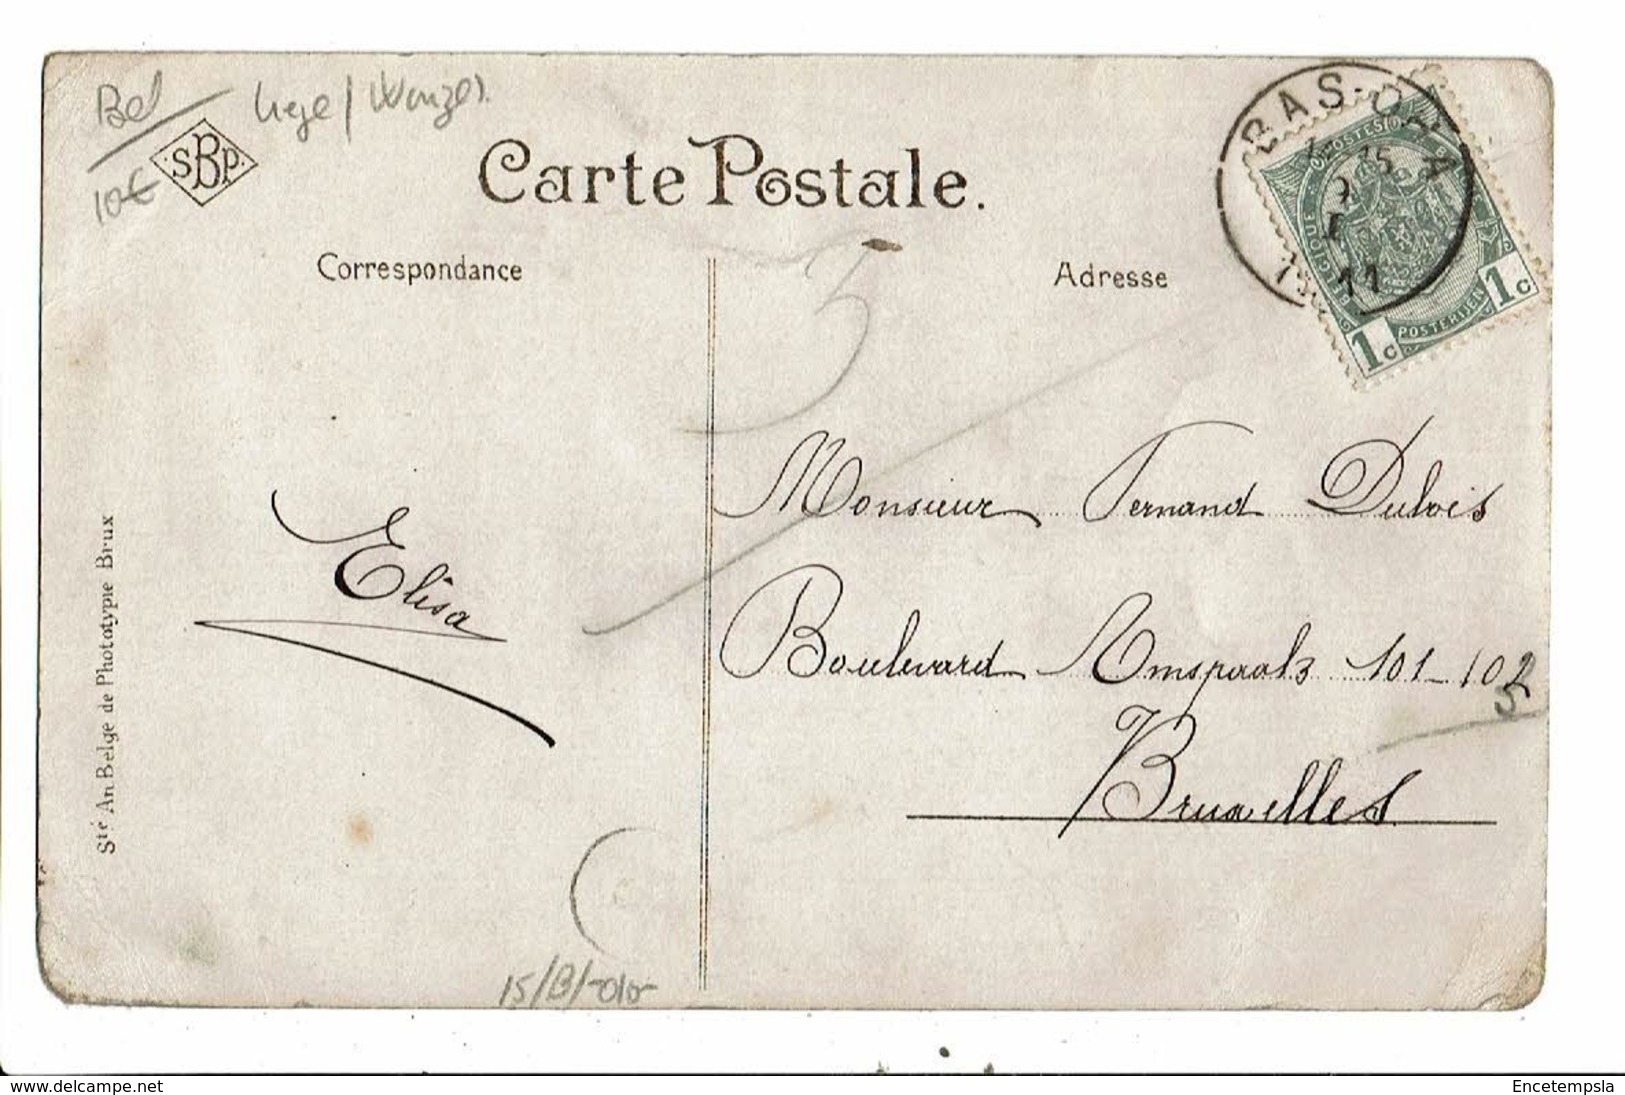 Bel
Liege /
10€
SBP
Carte Postale.
Correspondance
Adresse
BAS-OHA
11
BELGIQUE POSTES
POSTERIJEN
1c 1c
3
Monsieur Fernand Dubois
Boulevard Amspack 101-102
Bruxelles
3
Elisa
Sté An. Belge de Phototypie Brux
15/B/
www.delcampe.net
Encetempsla